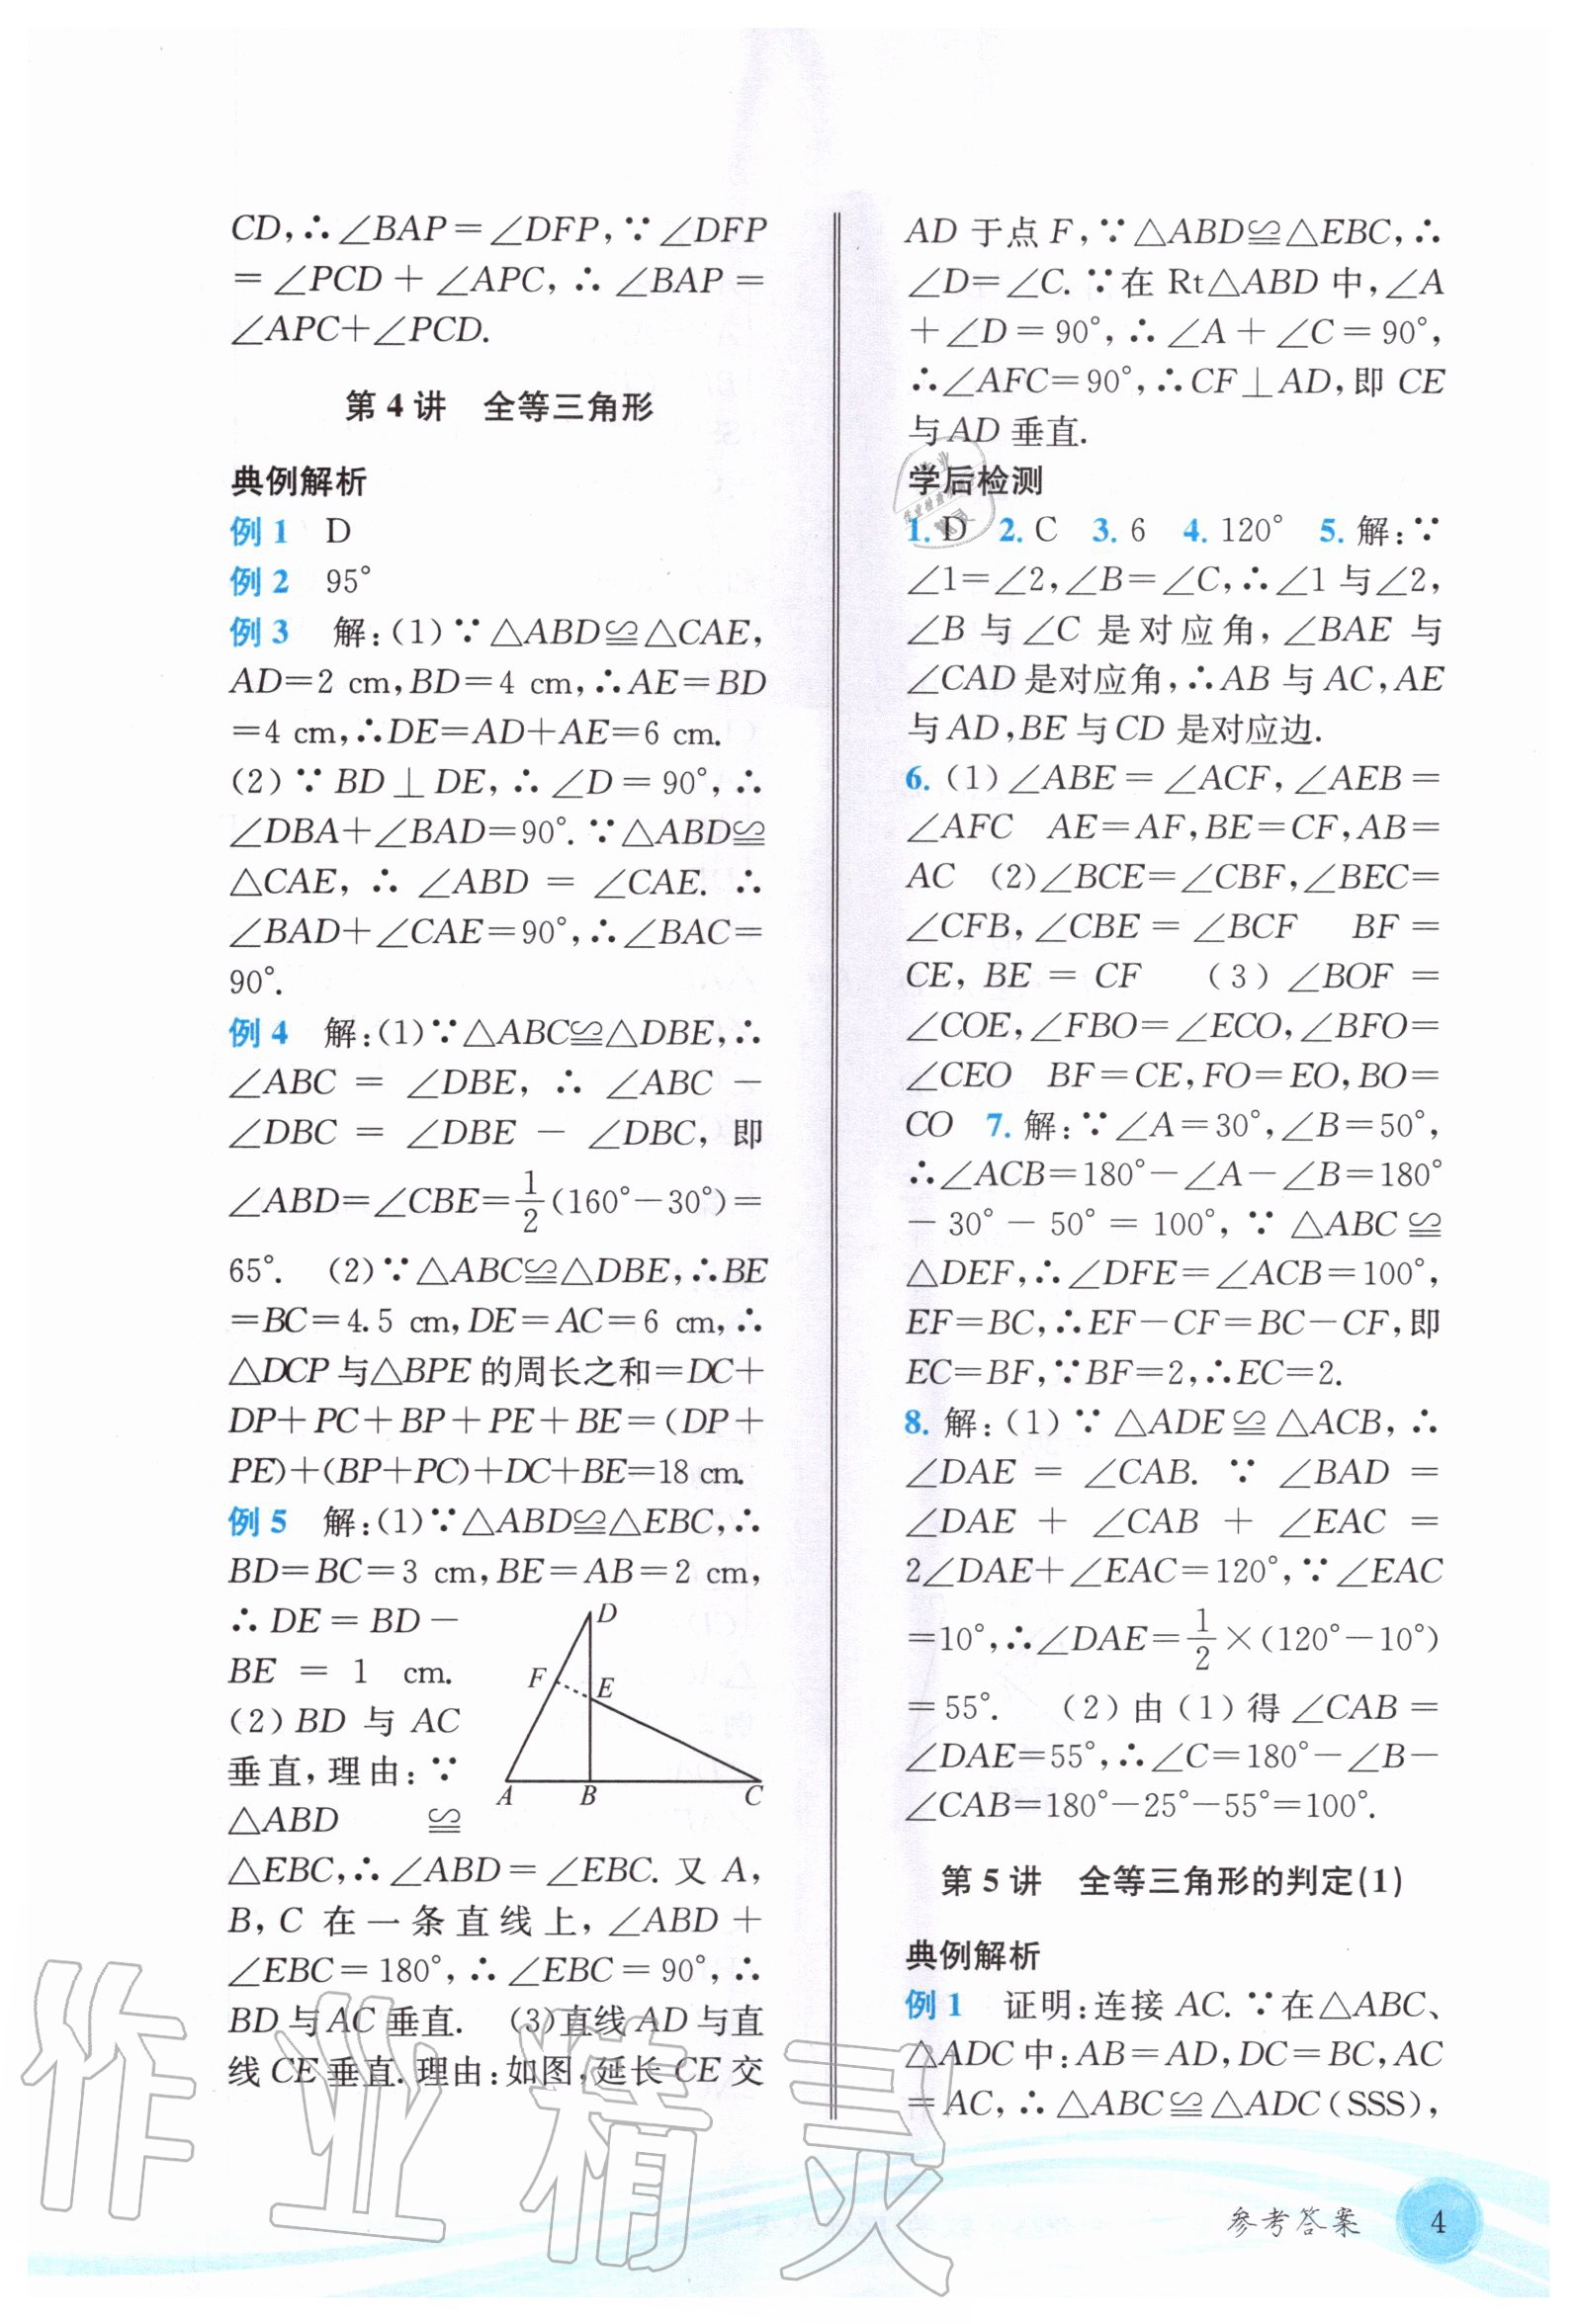 CD,∴∠BAP=∠DFP,∵∠DFP
=∠PCD+∠APC,∴∠BAP=
∠APC+∠PCD.
第4讲 全等三角形
典例解析
例1 D
例2 95°
例3 解:(1)∵△ABD≌△CAE,
AD=2 cm,BD=4 cm,∴AE=BD
=4 cm,∴DE=AD+AE=6 cm.
(2)∵BD⊥DE,∴∠D=90°,∴
∠DBA+∠BAD=90°.∵△ABD≌
△CAE,∴∠ABD=∠CAE.∴
∠BAD+∠CAE=90°,∴∠BAC=
90°.
例4 解:(1)∵△ABC≌△DBE,∴
∠ABC=∠DBE,∴∠ABC-
∠DBC=∠DBE-∠DBC,即
∠ABD=∠CBE=1/2(160°-30°)=
65°. (2)∵△ABC≌△DBE,∴BE
=BC=4.5 cm,DE=AC=6 cm,∴
△DCP与△BPE的周长之和=DC+
DP+PC+BP+PE+BE=(DP+
PE)+(BP+PC)+DC+BE=18 cm.
例5 解:(1)∵△ABD≌△EBC,∴
BD=BC=3 cm,BE=AB=2 cm,
∴DE=BD-
BE=1 cm.
(2)BD与AC
垂直,理由:∵
△ABD≌
D
F
E
A
B
C
△EBC,∴∠ABD=∠EBC.又A,
B,C在一条直线上,∠ABD+
∠EBC=180°,∴∠EBC=90°,∴
BD与AC垂直. (3)直线AD与直
线CE垂直.理由:如图,延长CE交
AD于点F,∵△ABD≌△EBC,∴
∠D=∠C.∵在Rt△ABD中,∠A
+∠D=90°,∴∠A+∠C=90°,
∴∠AFC=90°,∴CF⊥AD,即CE
与AD垂直.
学后检测
1. D 2. C 3. 6 4. 120° 5. 解:∵
∠1=∠2,∠B=∠C,∴∠1与∠2,
∠B与∠C是对应角,∠BAE与
∠CAD是对应角,∴AB与AC,AE
与AD,BE与CD是对应边.
6. (1)∠ABE=∠ACF,∠AEB=
∠AFC AE=AF,BE=CF,AB=
AC (2)∠BCE=∠CBF,∠BEC=
∠CFB,∠CBE=∠BCF BF=
CE,BE=CF (3)∠BOF=
∠COE,∠FBO=∠ECO,∠BFO=
∠CEO BF=CE,FO=EO,BO=
CO 7. 解:∵∠A=30°,∠B=50°,
∴∠ACB=180°-∠A-∠B=180°
-30°-50°=100°,∵△ABC≌
△DEF,∴∠DFE=∠ACB=100°,
EF=BC,∴EF-CF=BC-CF,即
EC=BF,∵BF=2,∴EC=2.
8. 解:(1)∵△ADE≌△ACB,∴
∠DAE=∠CAB.∵∠BAD=
∠DAE+∠CAB+∠EAC=
2∠DAE+∠EAC=120°,∵∠EAC
=10°,∴∠DAE=1/2×(120°-10°)
=55°. (2)由(1)得∠CAB=
∠DAE=55°,∴∠C=180°-∠B-
∠CAB=180°-25°-55°=100°.
第5讲 全等三角形的判定(1)
典例解析
例1 证明:连接AC.∵在△ABC、
△ADC中:AB=AD,DC=BC,AC
=AC,∴△ABC≌△ADC(SSS),
作业精灵
参考答案 4